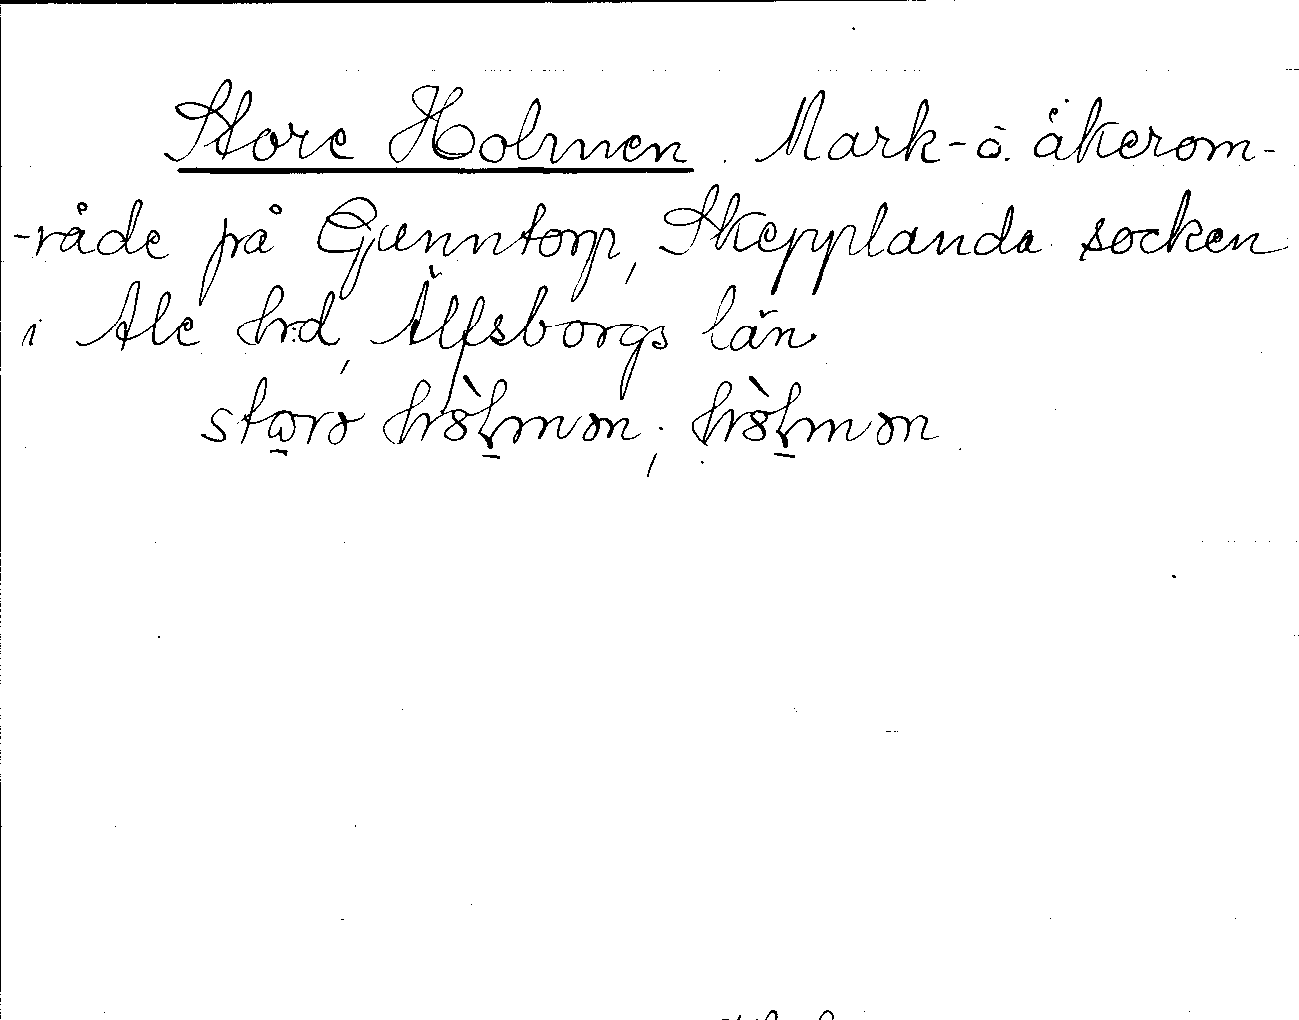 Store Holmen. Mark- o. åkerom-
-råde på Gunntorp, Skepplanda socken
i Ale hrd, Älfsborgs län